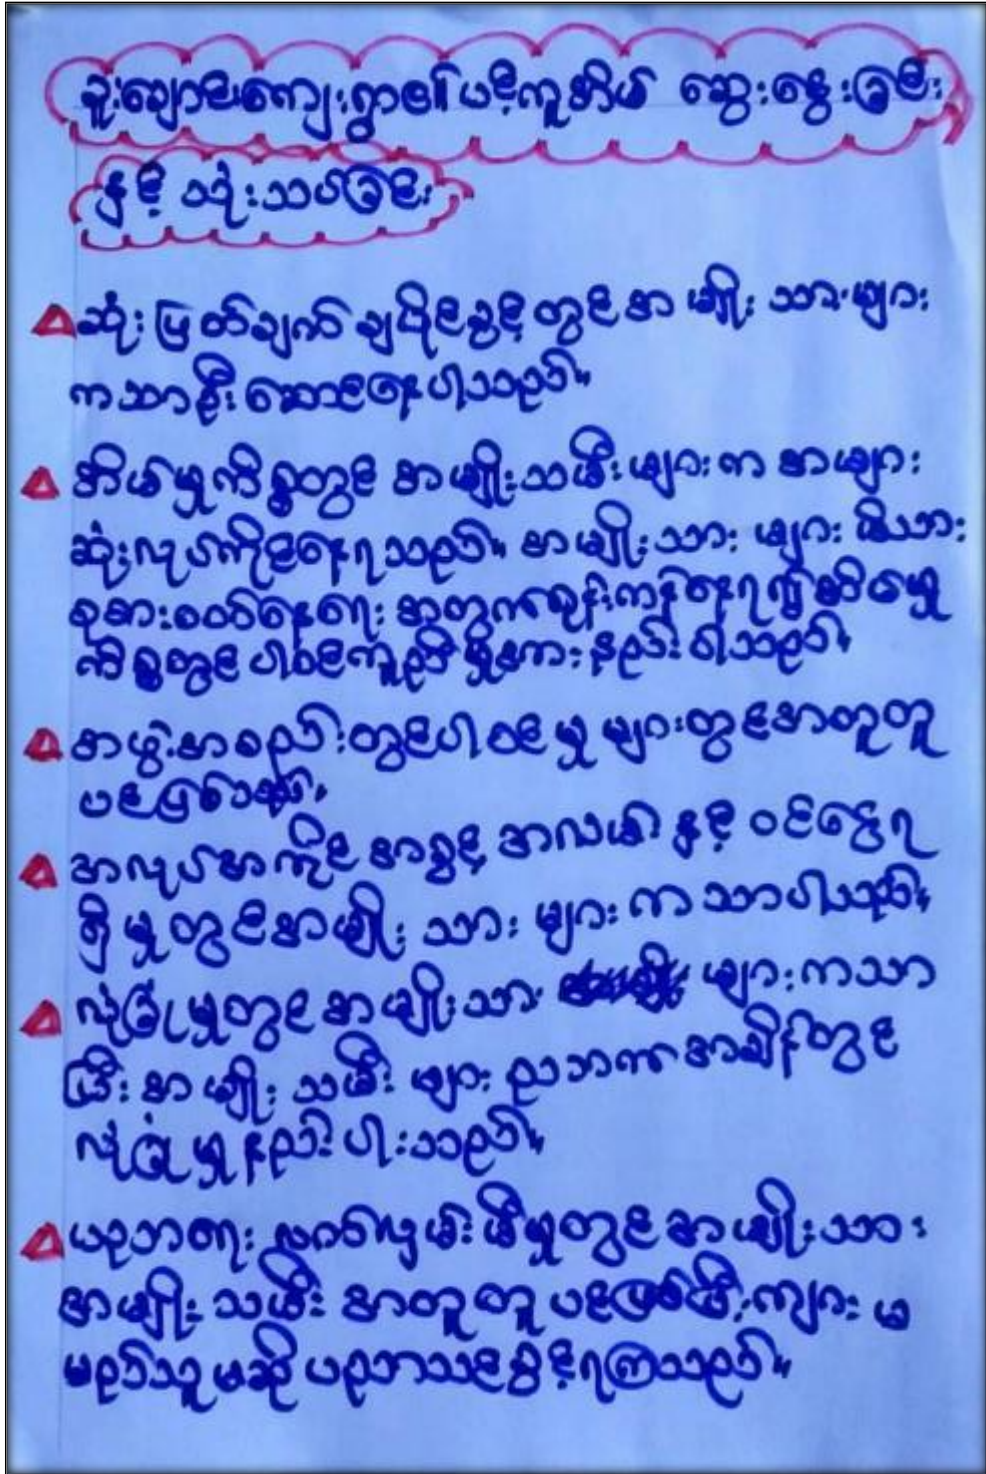 ခူးချောင်းကျေးရွာ၏ပင့်ကူအိမ် ဆွေးနွေးခြင်း
နှင့် သုံးသပ်ခြင်း
ဆုံးဖြတ်ချက်ချပိုင်ခွင့်တွင်အမျိုးသားများ
ကသာဦးဆောင်နေပါသည်။
အိမ်မှုကိစ္စတွင် အမျိုးသမီးများက အများ
ဆုံးလုပ်ကိုင်နေရသည်။ အမျိုးသားများ မိသား
စုစားဝတ်နေရေး အတွက်ရုန်းကန်နေရ၍အိမ်မှု
ကိစ္စတွင်ပါဝင်ကူညီမှုအား နည်းပါသည်။
အဖွဲ့အစည်းတွင်ပါဝင်မှုများတွင်အတူတူ
ပင်ဖြစ်သည်။
အလုပ်အကိုင်အခွင့်အလမ်းနှင့် ဝင်ငွေရ
ရှိမှုတွင်အမျိုးသားများကသာပါသည်။
လုံခြုံမှုတွင်အမျိုးသား များကသာ
ပြီး အမျိုးသမီးများညဘက်အချိန်တွင်
လုံခြုံမှုနည်းပါးသည်။
ပညာရေးလက်လှမ်းမီမှုတွင်အမျိုးသား
အမျိုးသမီး အတူတူပင်ဖြစ်ပြီးကျား မ
မည်သူမဆိုပညာသင်ခွင့်ရကြသည်။